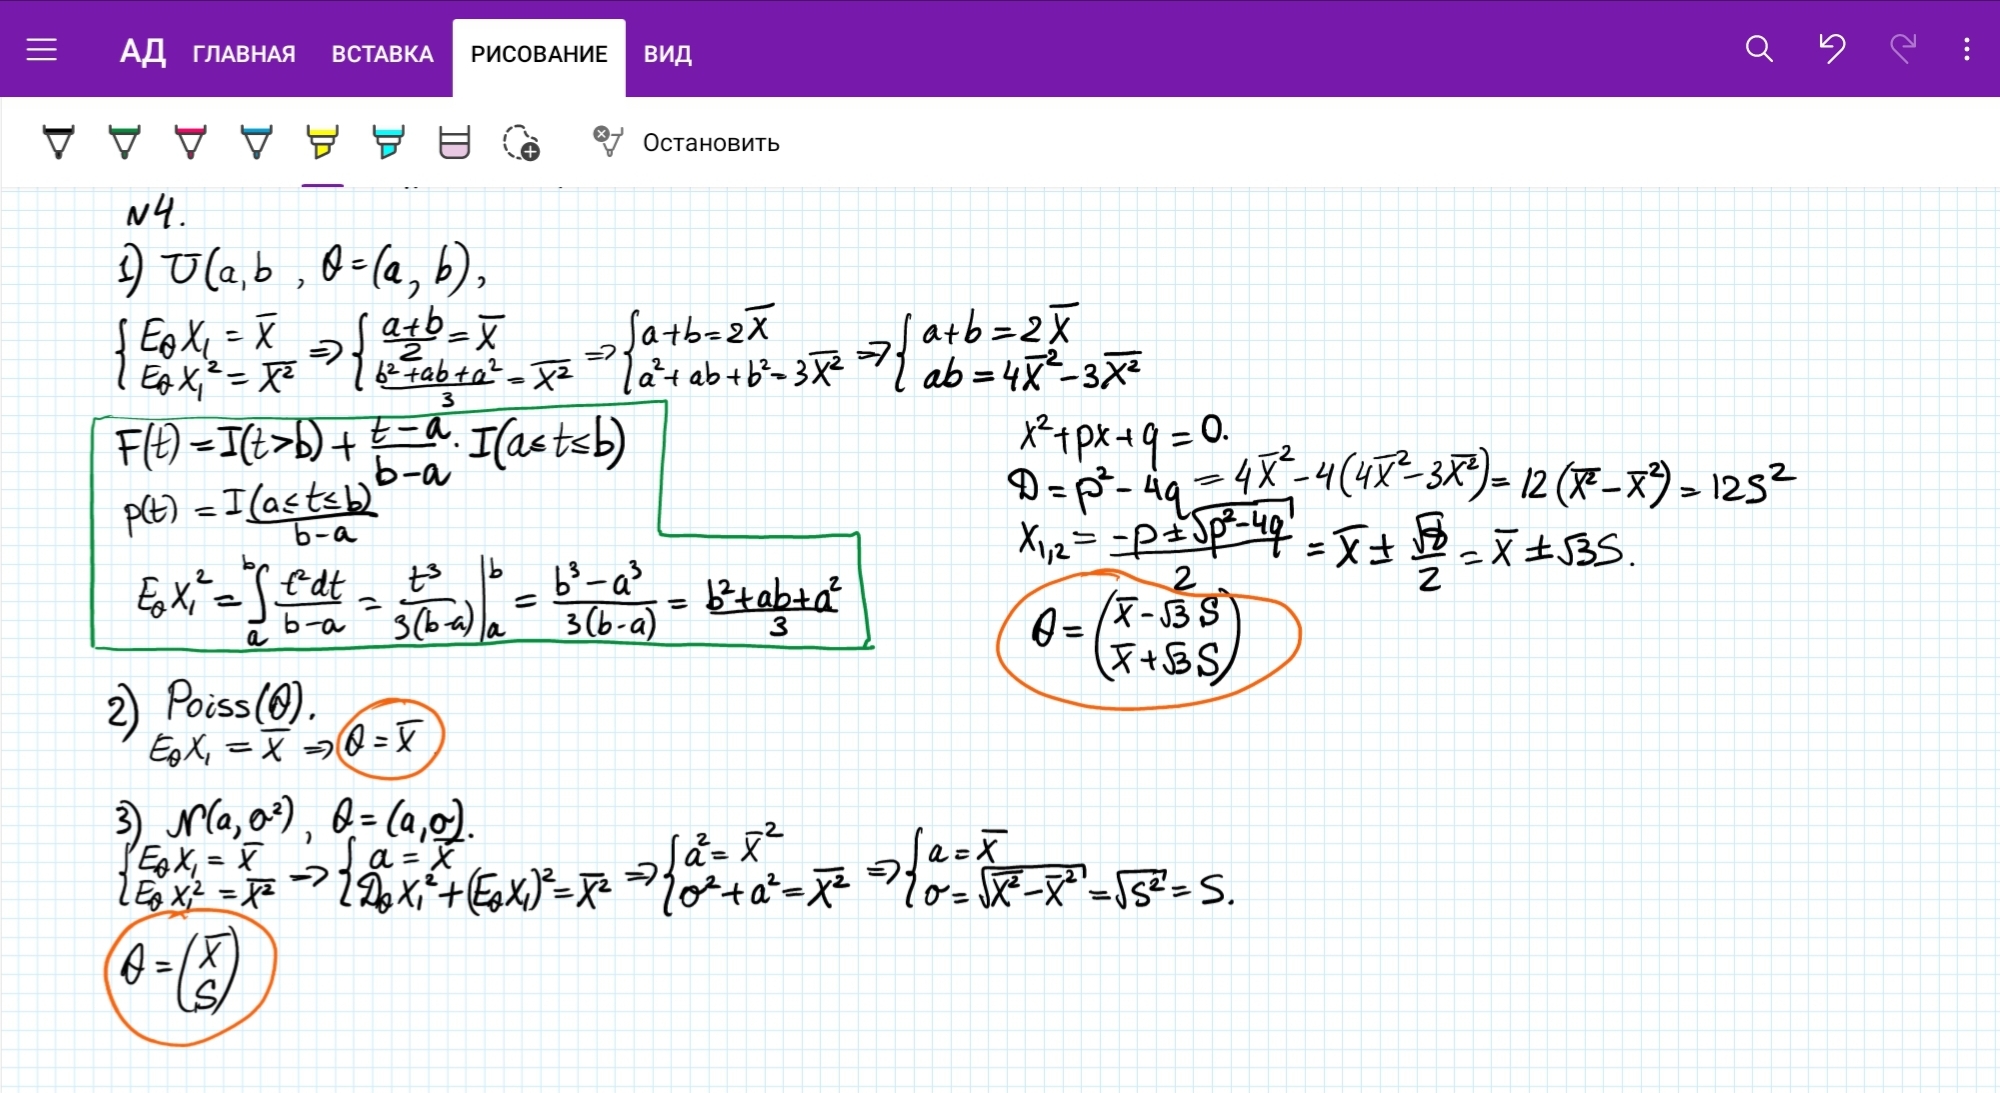 АД ГЛАВНАЯ ВСТАВКА РИСОВАНИЕ ВИД
Остановить
N4.
1) U(a,b , θ=(a, b),
{ E_θ X₁ = X̅ ; E_θ X₁² = X̅² (черта над X²) ⇒ { (a+b)/2 = X̅ ; (b²+ab+a²)/3 = \overline{X²} ⇒ { a+b=2X̅ ; a²+ab+b²=3\overline{X²} ⇒ { a+b=2X̅ ; ab=4X̅²-3\overline{X²}
F(t)=I(t>b)+(t-a)/(b-a)·I(a≤t≤b)
p(t)=I(a≤t≤b)/(b-a)
E_θ X₁²=∫_a^b t²dt/(b-a) = t³/(3(b-a)) |_a^b = (b³-a³)/(3(b-a)) = (b²+ab+a²)/3
x²+px+q=0.
D=p²-4q=4X̅²-4(4X̅²-3\overline{X²})=12(\overline{X²}-X̅²)=12S²
x₁,₂=(-p±√(p²-4q))/2=X̅±√D/2=X̅±√3S.
θ=(X̅-√3S
X̅+√3S)
2) Poiss(θ).
E_θ X₁=X̅ ⇒ θ=X̅
3) N(a,σ²), θ=(a,σ).
{ E_θ X₁=X̅ ; E_θ X₁²=\overline{X²} ⇒ { a=X̅ ; D_θ X₁²+(E_θ X₁)²=\overline{X²} ⇒ { a²=X̅² ; σ²+a²=\overline{X²} ⇒ { a=X̅ ; σ=√(\overline{X²}-X̅²)=√S²=S.
θ=(X̅
S)